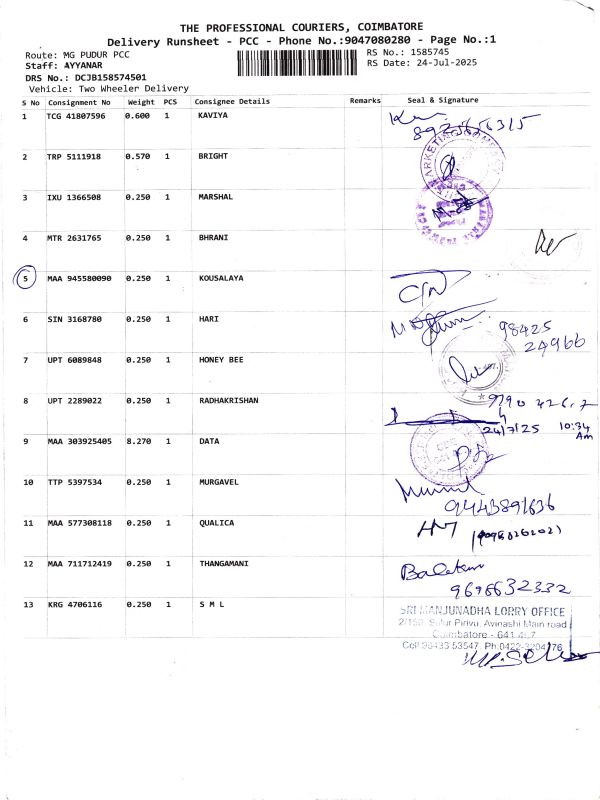 THE PROFESSIONAL COURIERS, COIMBATORE
Delivery Runsheet - PCC - Phone No.:9047080280 - Page No.:1
Route: MG PUDUR PCC
RS No.: 1585745
Staff: AYYANAR
RS Date: 24-Jul-2025
DRS No.: DCJB158574501
Vehicle: Two Wheeler Delivery
S No Consignment No Weight PCS Consignee Details Remarks Seal & Signature
1 TCG 41807596 0.600 1 KAVIYA
2 TRP 5111918 0.570 1 BRIGHT
3 IXU 1366508 0.250 1 MARSHAL
4 MTR 2631765 0.250 1 BHRANI
5 MAA 945580090 0.250 1 KOUSALAYA
6 SIN 3168780 0.250 1 HARI
98425
24966
7 UPT 6089848 0.250 1 HONEY BEE
8 UPT 2289022 0.250 1 RADHAKRISHAN
24/7/25 10:34 Am
9 MAA 303925405 8.270 1 DATA
10 TTP 5397534 0.250 1 MURGAVEL
9443891636
11 MAA 577308118 0.250 1 QUALICA
12 MAA 711712419 0.250 1 THANGAMANI
9696632332
13 KRG 4706116 0.250 1 S M L
SRI MANJUNADHA LORRY OFFICE
2/150, Sulur Pirivu, Avinashi Main road
Coimbatore - 641 407
Cell 98433 53547 Ph:0422-3204176